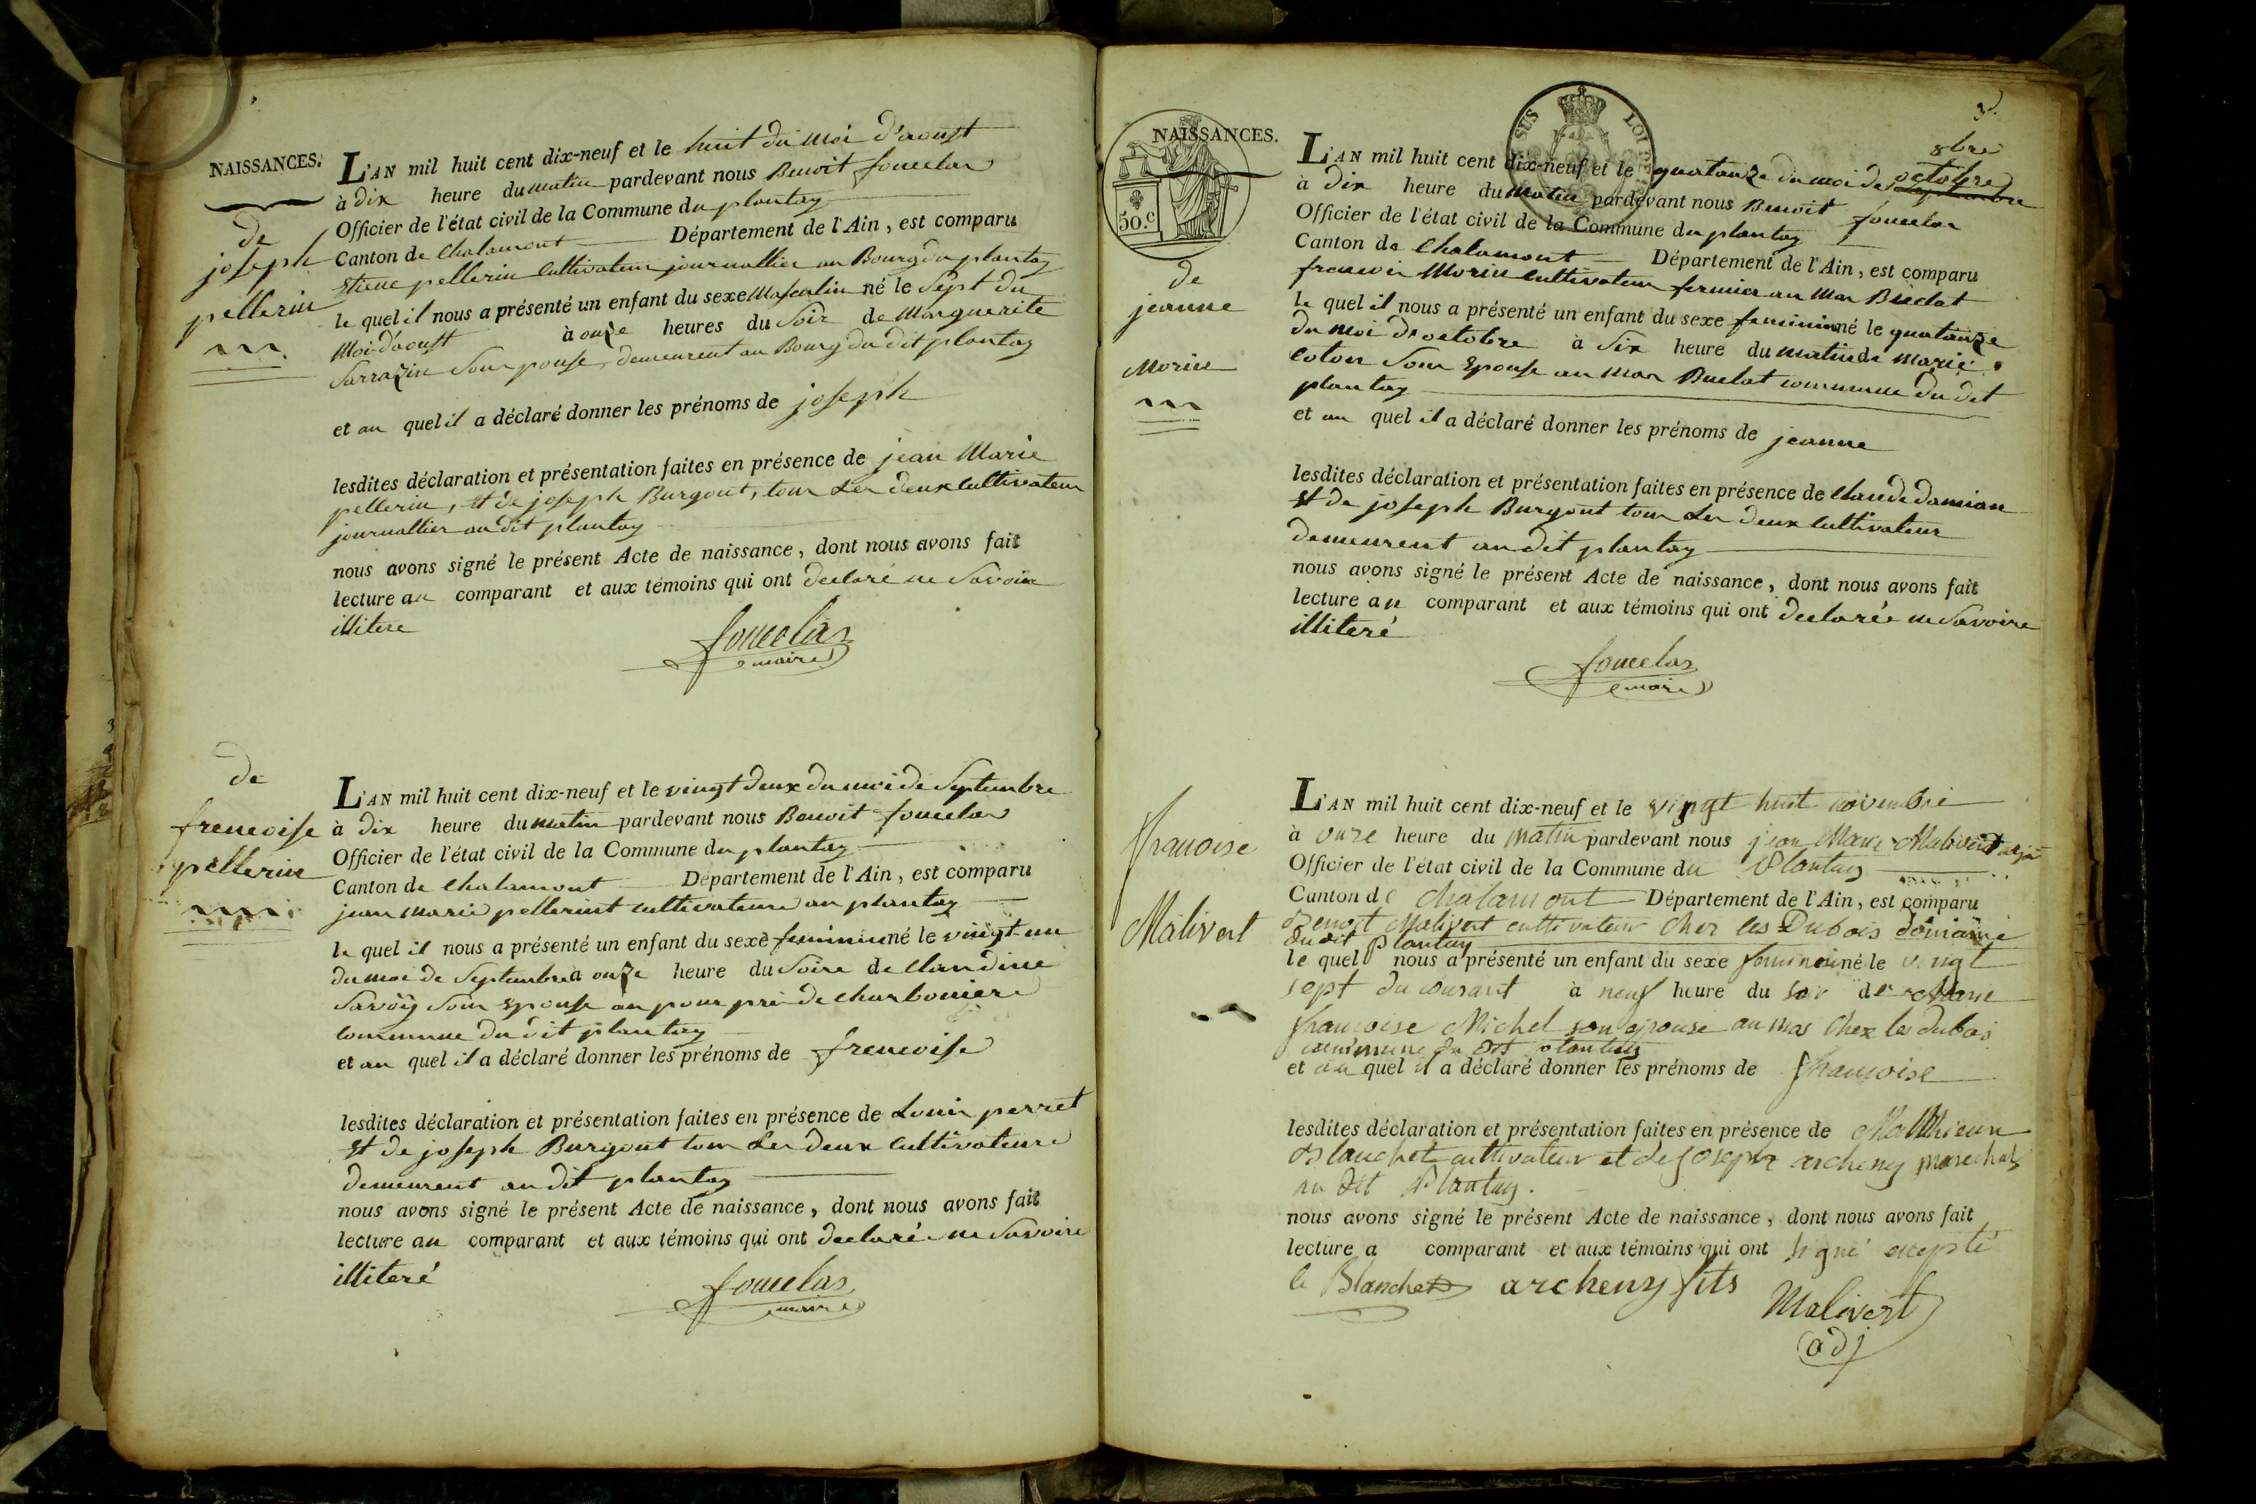 NAISSANCES.
de
joseph
pellerin
L'AN mil huit cent dix-neuf et le huit du moi d'aoust
à dix heure du matin pardevant nous Benoit fouuelas
Officier de l'état civil de la Commune du plantay
Canton de Chalamont Département de l'Ain, est comparu
pellerin Cultivateur journallier au Bourg du plantay
le quel il nous a présenté un enfant du sexe Masculin né le Sept du
Moi d'aoust à onze heures du Soir de Marguerite
Sarrazin Son pouse, demeurent au Bourg du dit plantay
et au quel il a déclaré donner les prénoms de joseph
lesdites déclaration et présentation faites en présence de jean Marie
pellerin, et de joseph Burgout, tous Les deux Cultivateur
journallier au dit plantay
nous avons signé le présent Acte de naissance, dont nous avons fait
lecture au comparant et aux témoins qui ont declaré ne Savoir
illitere
fouuelas
maire
de
frencoise
pellerin
L'AN mil huit cent dix-neuf et le vingt deux du moi de Septembre
à dix heure du matin pardevant nous Benoit fouuelas
Officier de l'état civil de la Commune du plantay
Canton de Chalamont Département de l'Ain, est comparu
jean marie pellerint cultivateur au plantay
le quel il nous a présenté un enfant du sexe feminin né le vingt-un
du moi de Septembre à onze heure du Soire de Clandine
Savoÿ Son Epouse au pour pri de Charboniere
commune du dit plantay
et au quel il a déclaré donner les prénoms de frencoise
lesdites déclaration et présentation faites en présence de Louis perret
et de joseph Burgout tous Les deux Cultivateur
demeurent au dit plantay
nous avons signé le présent Acte de naissance, dont nous avons fait
lecture au comparant et aux témoins qui ont declaré ne Savoire
illiteré
fouuelas
maire
3.
NAISSANCES.
50.c
SUS LOI DE
de
jeanne
Morin
8bre
L'AN mil huit cent dix-neuf et le quatorze du moi de octobre septembre
à dix heure du matin pardevant nous Benoit fouuelas
Officier de l'état civil de la Commune du plantay
Canton de Chalamont Département de l'Ain, est comparu
francois Morin Cultivateur fermier au Mas
le quel il nous a présenté un enfant du sexe feminin né le quatorze
du moi de octobre à Six heure du matin de Marie
coton Son Epouse au Mas Buclat commune du dit
plantay
et au quel il a déclaré donner les prénoms de jeanne
lesdites déclaration et présentation faites en présence de Claude damian
et de joseph Burgout tous Les deux Cultivateur
demeurent au dit plantay
nous avons signé le présent Acte de naissance, dont nous avons fait
lecture au comparant et aux témoins qui ont declarée ne Savoire
illiteré
fouuelas
maire
francoise
Malivert
L'AN mil huit cent dix-neuf et le vingt huit novembre
à onze heure du matin pardevant nous jean Marie Malivert adjt
Officier de l'état civil de la Commune du Plantay
Canton de Chalamont Département de l'Ain, est comparu
Benoit Malivert cultivateur Chez les Dubois domaine
du dit Plantay
le quel nous a présenté un enfant du sexe feminin né le vingt
sept du courant à neuf heure du soir de Marie
francoise Michel son epouse au mas Chez les dubois
commune du dit plantay
et au quel il a déclaré donner les prénoms de francoise
lesdites déclaration et présentation faites en présence de Matthieux
Blanchet cultivateur et de joseph archeny marechal
au dit Plantay.
nous avons signé le présent Acte de naissance, dont nous avons fait
lecture a comparant et aux témoins qui ont signé excepté
le Blanchet archeny fils
Malivert
adj